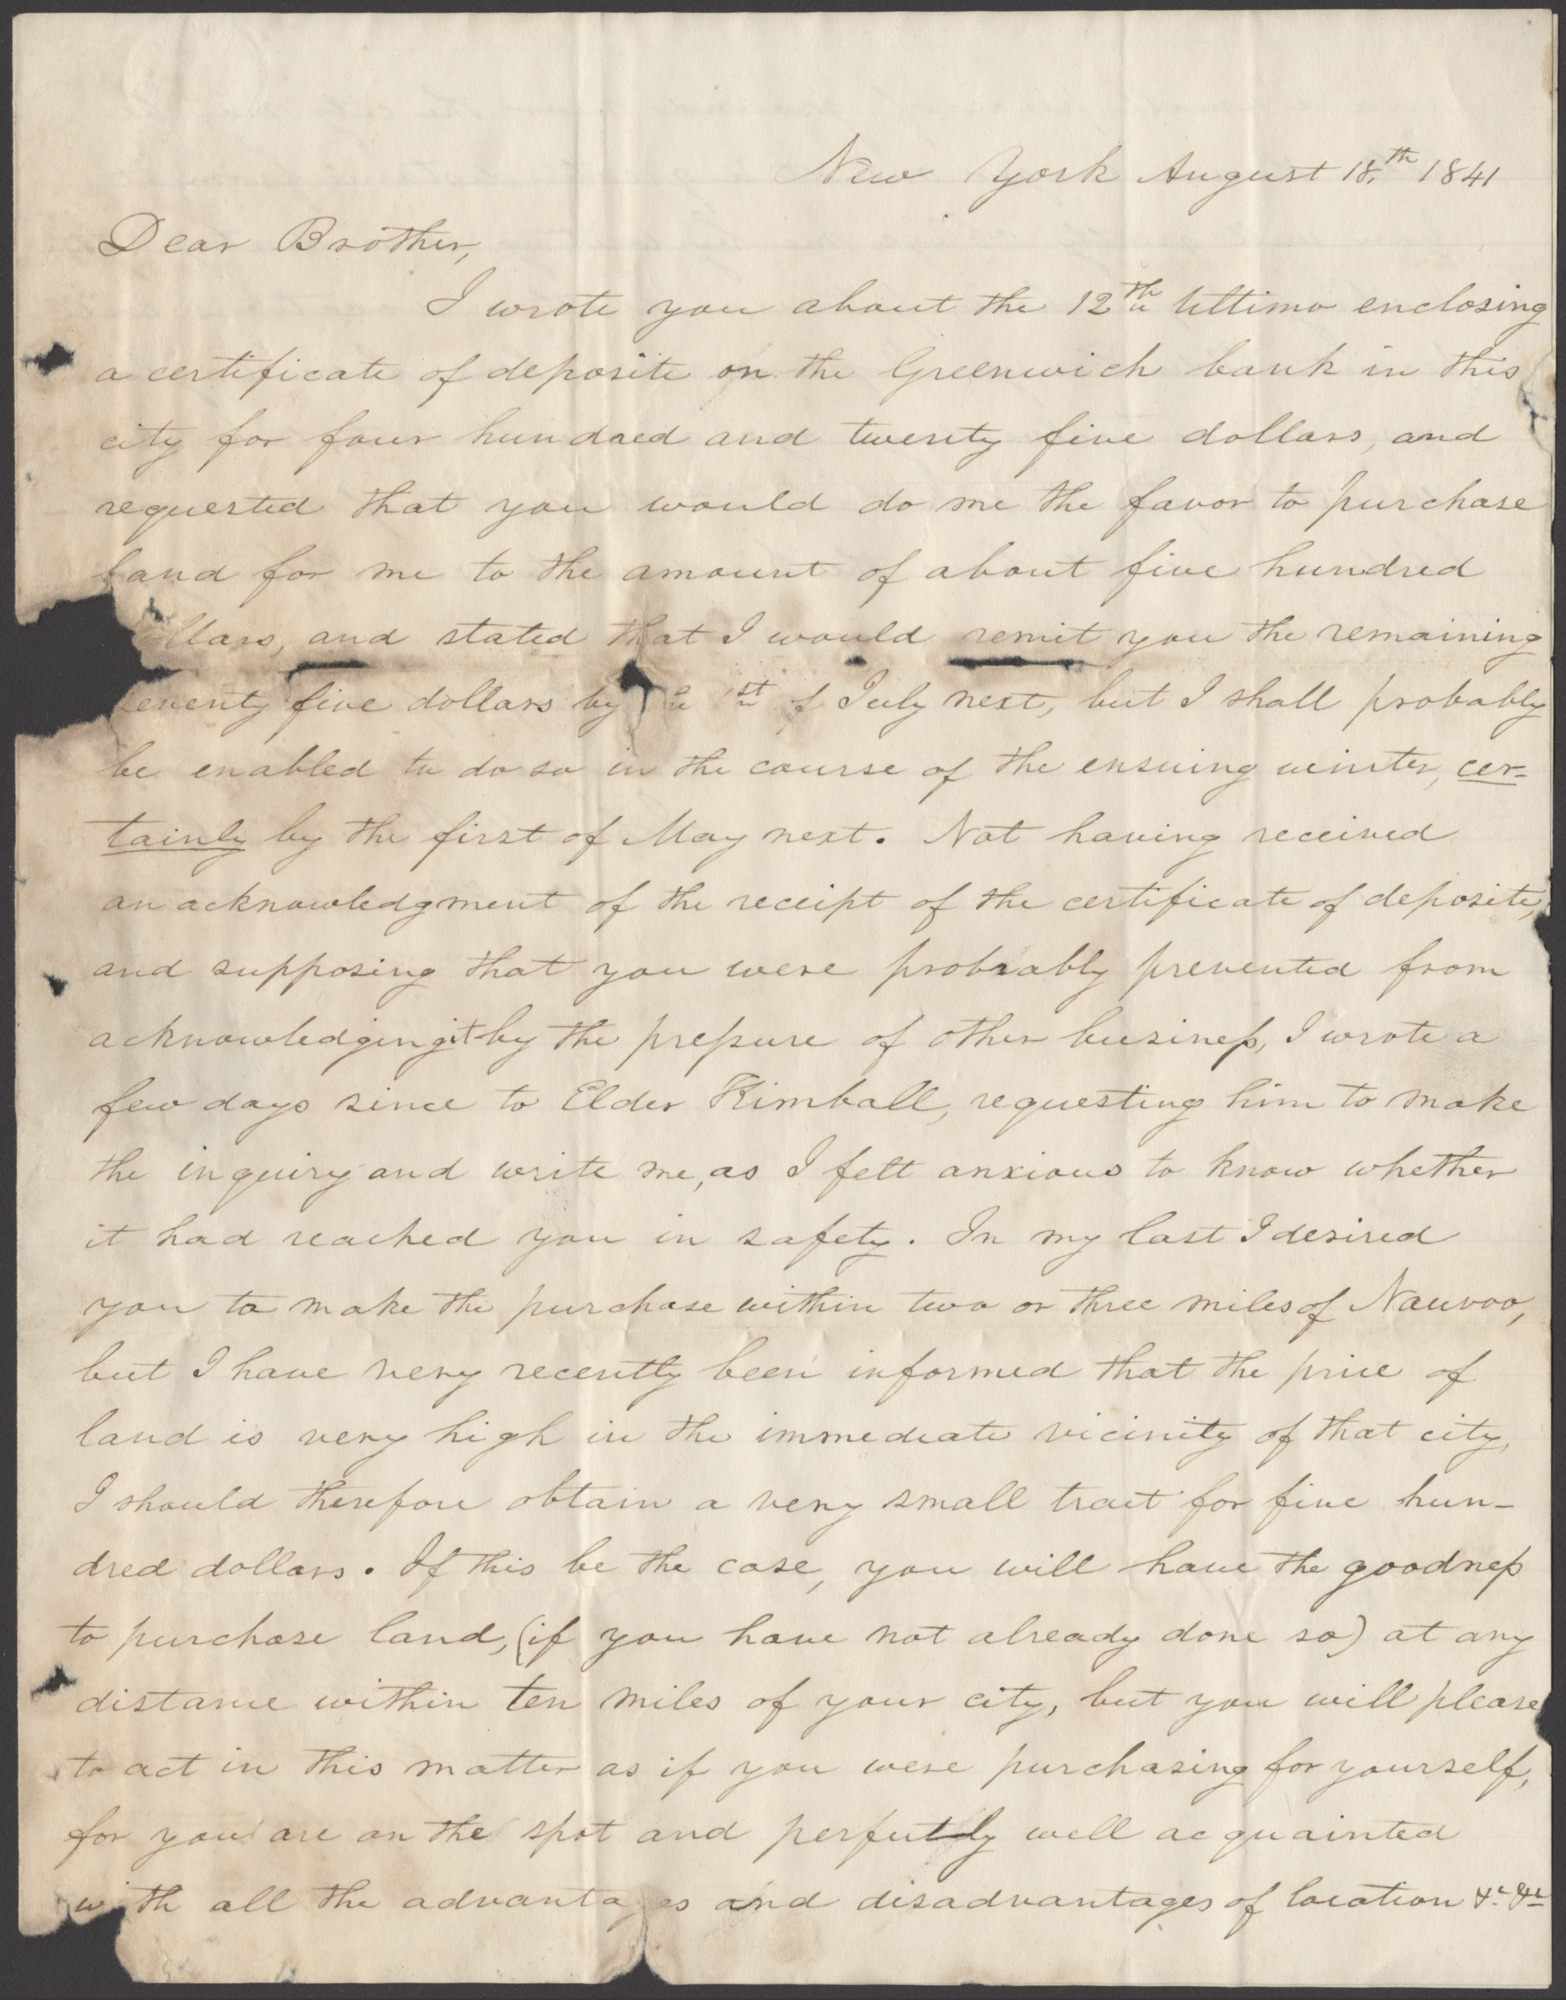 New York August 18,th 1841
Dear Brother,
I wrote you about the 12th Ultimo enclosing
a certificate of deposite on the Greenwich bank in this
city for four hundred and twenty five dollars, and
requested that you would do me the favor to purchase
land for me to the amount of about five hundred
ollars, and stated that I would remit you the remaining
eventy five dollars by 1st of July next, but I shall probably
be enabled to do so in the course of the ensuing winter, cer-
tainly by the first of May next. Not having received
an acknowledgment of the receipt of the certificate of deposite,
and supposing that you were probrably prevented from
acknowledging it by the pressure of other business, I wrote a
few days since to Elder Kimball, requesting him to make
the inquiry and write me, as I felt anxious to know whether
it had reached you in safety. In my last I desired
you to make the purchase within two or three miles of Nauvoo,
but I have very recently been informed that the price of
land is very high in the immediate vicinity of that city,
I should therefore obtain a very small tract for five hun-
dred dollars. If this be the case, you will have the goodness
to purchase land, (if you have not already done so) at any
distance within ten miles of your city, but you will please
to act in this matter as if you were purchasing for yourself,
for you are on the spot and perfectly well acquainted
with all the advantages and disadvantages of location &c &c